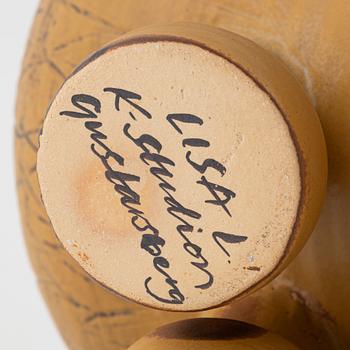 LISA L.
K-Studion
gustavsberg